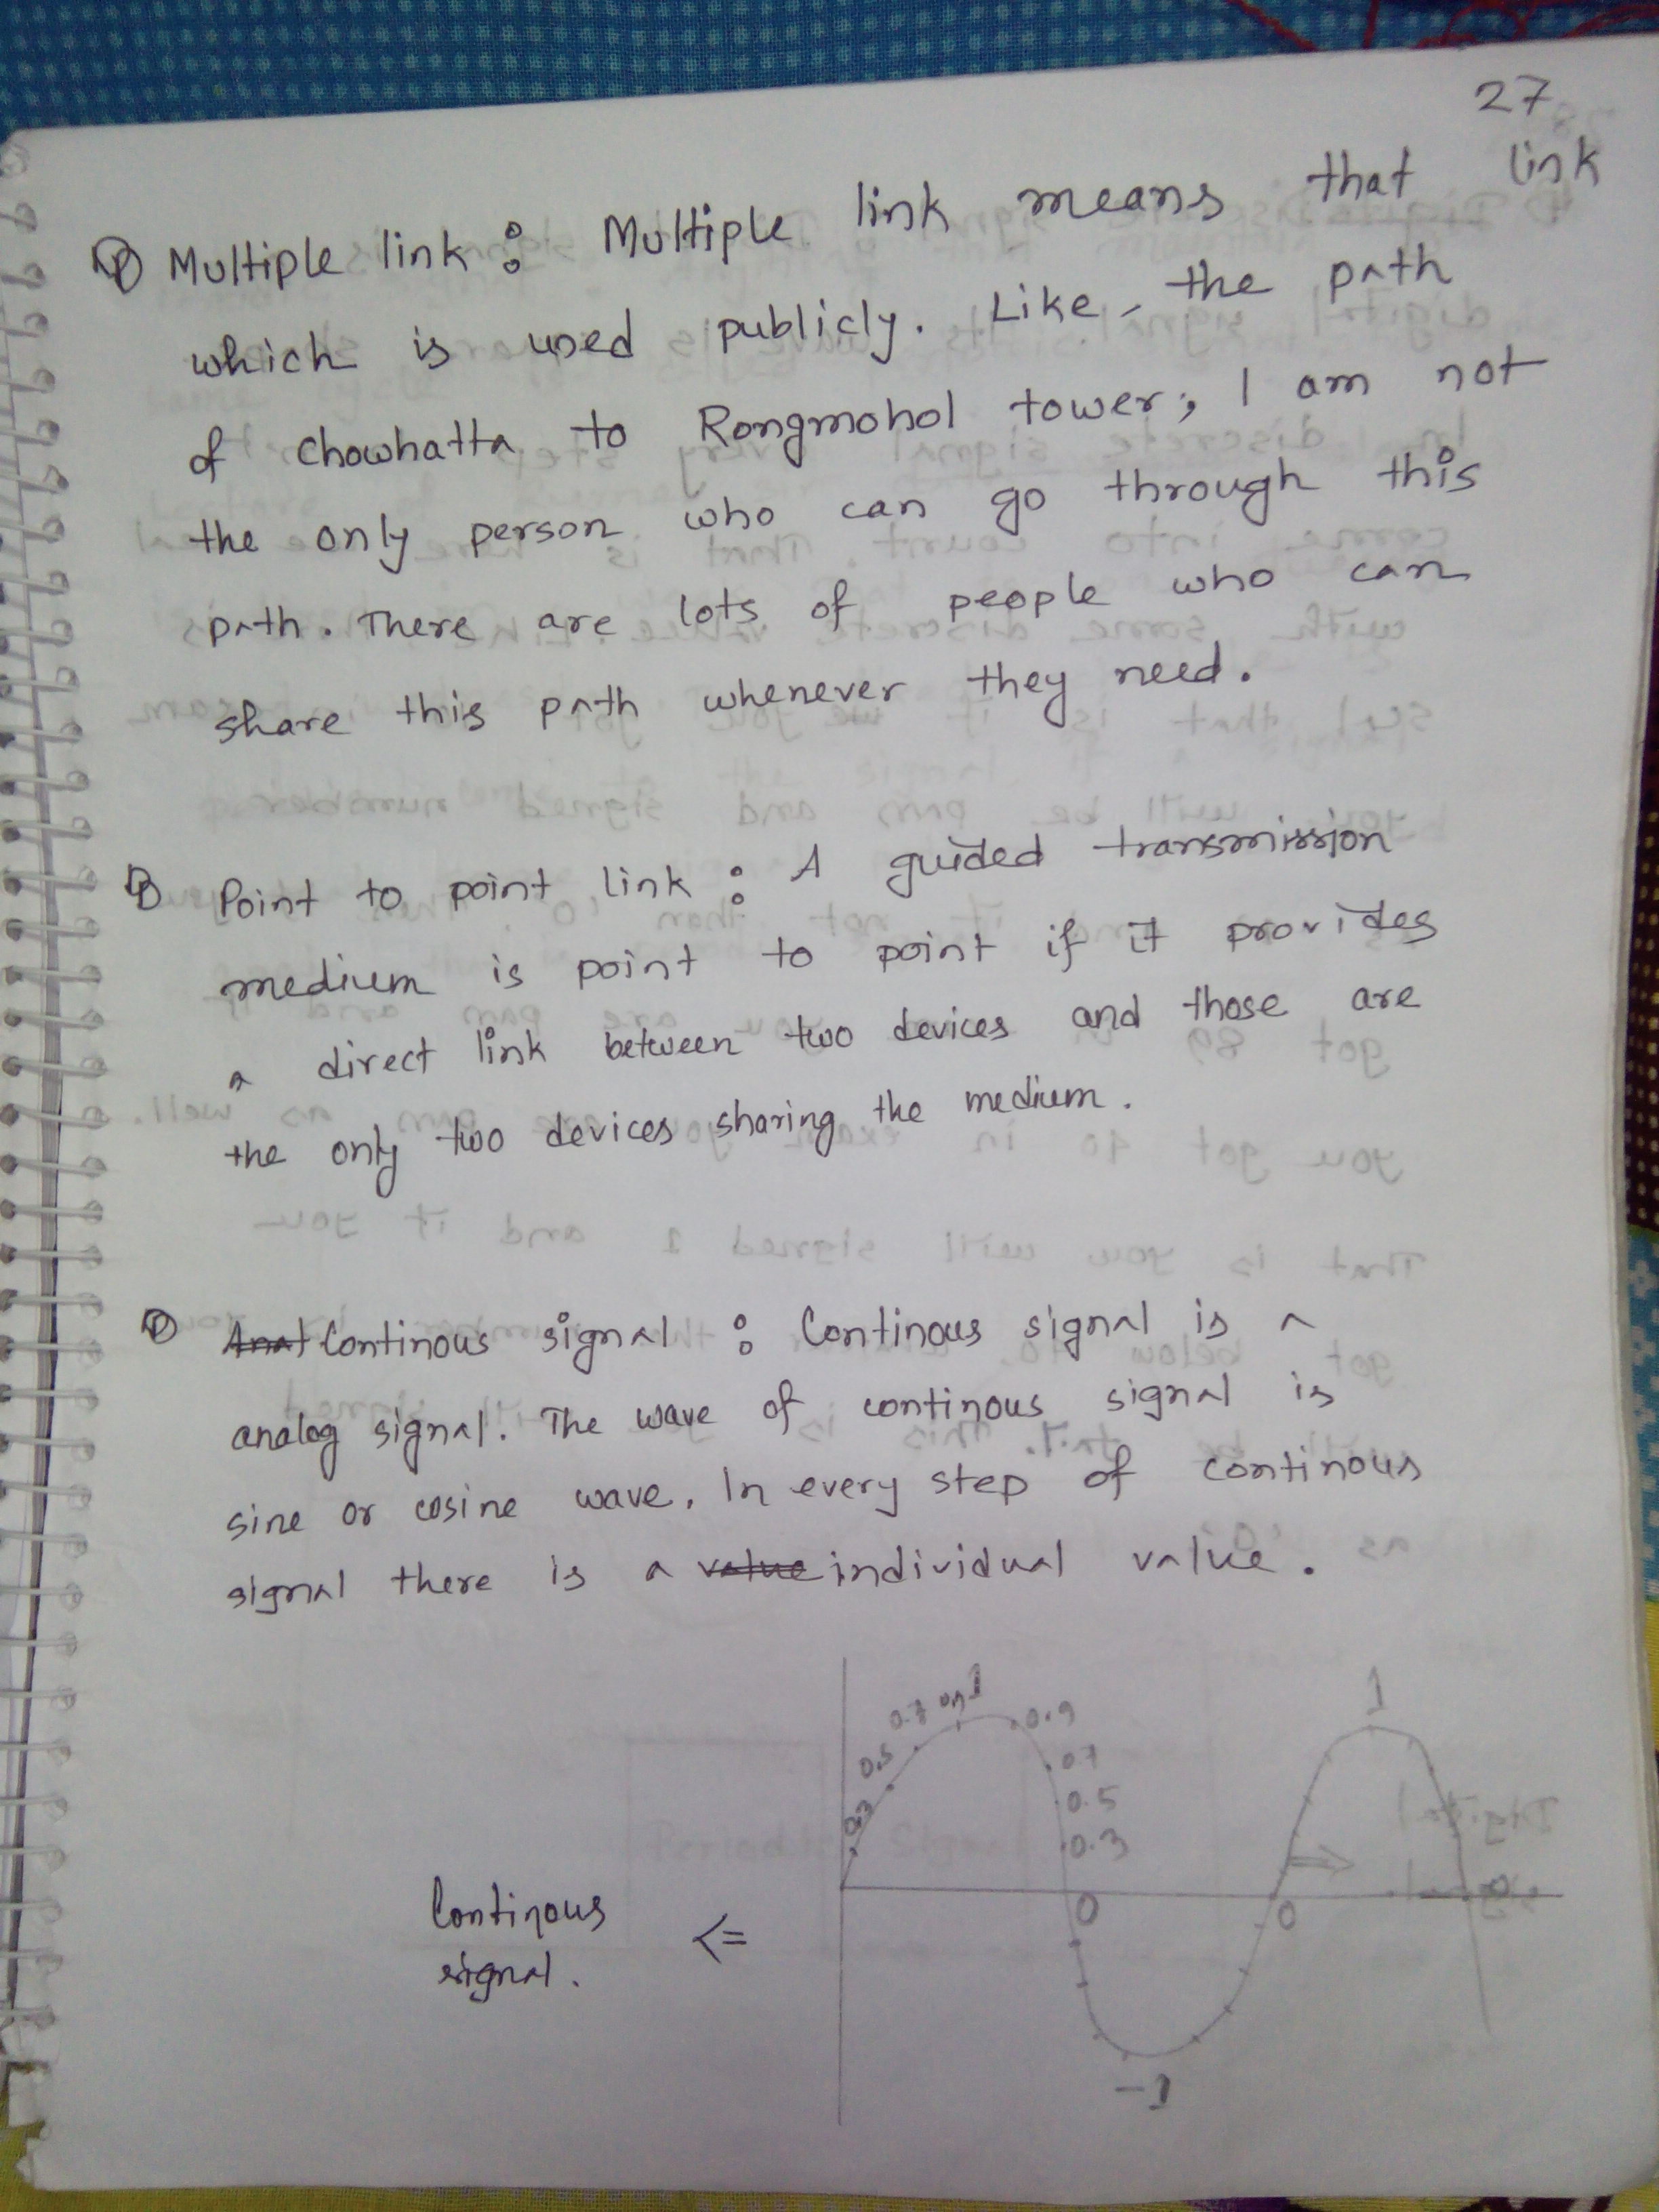 27
Multiple link : Multiple link means that link
which is used publicly. Like, the path
of chowhatta to Rongmohol tower, I am not
the only person who can go through this
path. There are lots of people who can
share this path whenever they need.
Point to point link : A guided transmission
medium is point to point if it provides
a direct link between two devices and those are
the only two devices sharing the medium.
Continous signal : Continous signal is a
analog signal. The wave of continous signal is
sine or cosine wave. In every step of continous
signal there is a value individual value.
0.3 0.5 0.7 1 0.9
0.7
0.5
0.3
1
0 0
-1
Continous <=
signal.